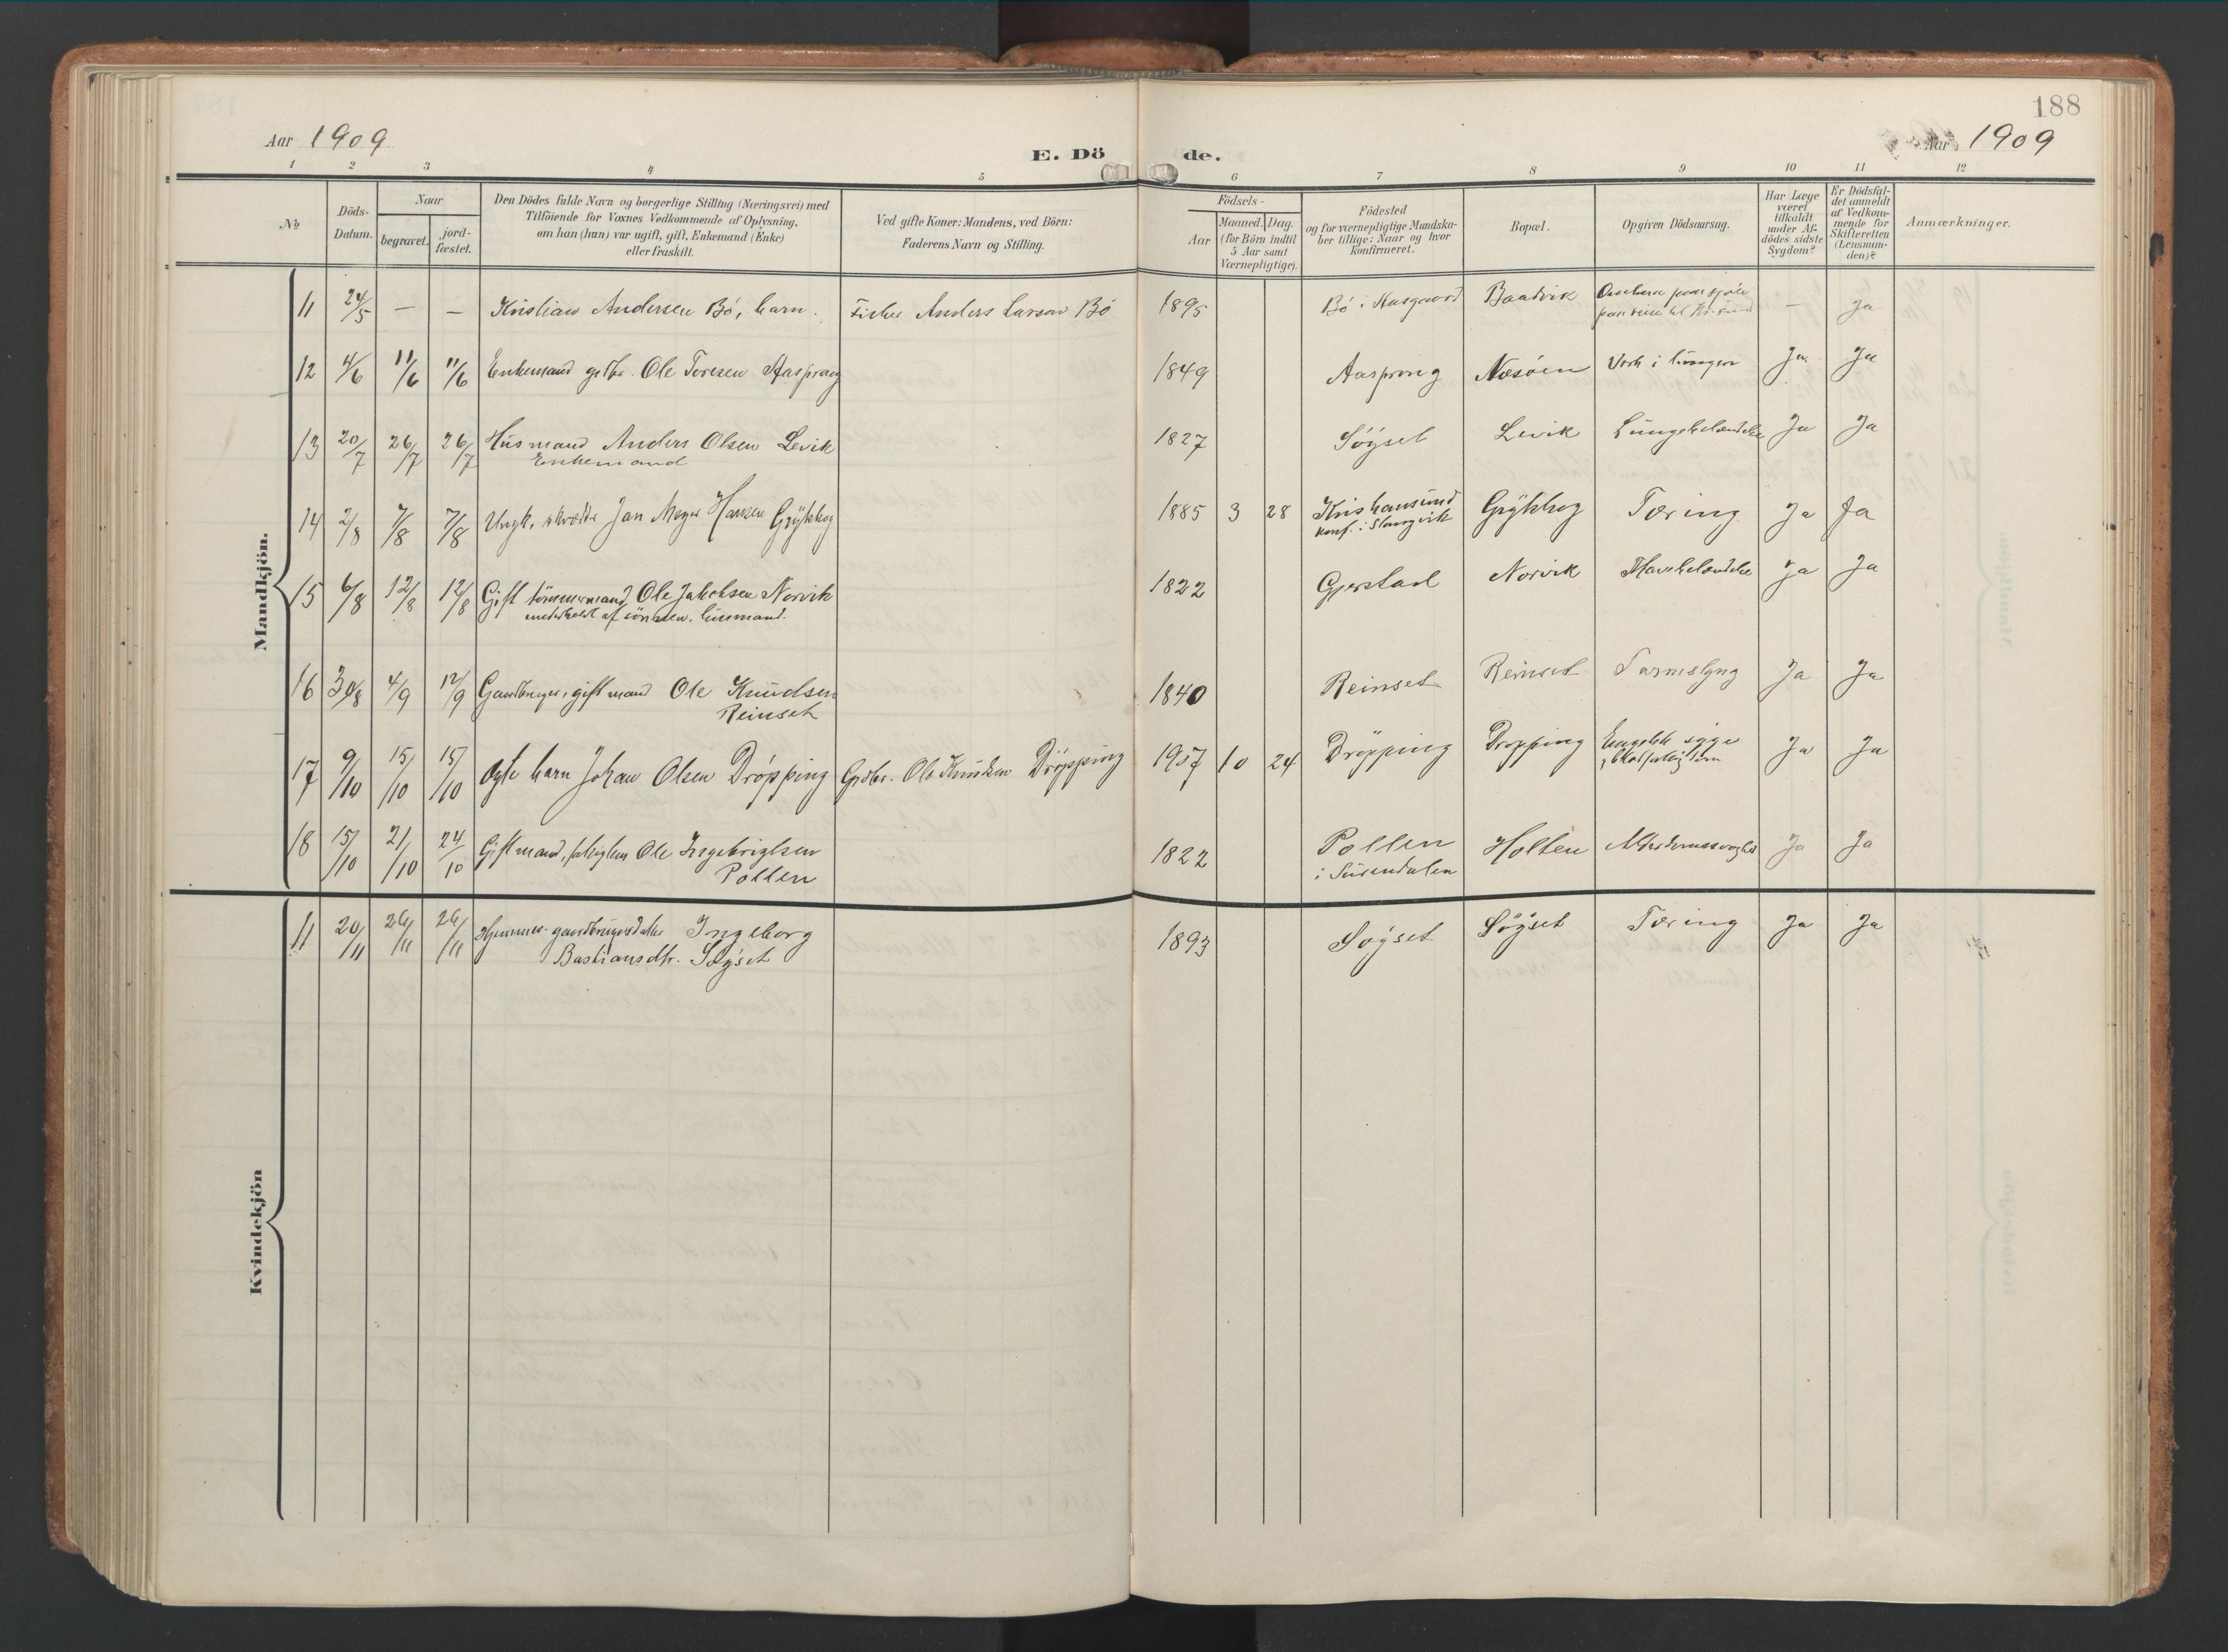 188
Aar 1909
E. Dö de.
Aar 1909
1 2 3 4 5 6 7 8 9 10 11 12
No
Döds-
Datum.
Naar
begravet.
jord-
fæstet.
Den Dödes fulde Navn og borgerlige Stilling (Næringsvei) med
Tilföiende for Voxnes Vedkommende af Oplysning,
om han (hun) var ugift, gift, Enkemand (Enke)
eller fraskilt.
Ved gifte Koner: Mandens, ved Börn:
Faderens Navn og Stilling.
Födsels-
Aar
Maaned.
Dag.
(for Börn indtil
5 Aar samt
Værnepligtige).
Födested
og for værnepligtige Mandska-
ber tillige: Naar og hvor
konfirmeret.
Bopæl.
Opgiven Dödsaarsag.
Har Læge
været
tilkaldt
under Af-
dödes sidste
Sygdom?
Er Dödsfal-
det anmeldt
af Vedkom-
mende for
Skifteretten
(Lensman-
den)?
Anmærkninger.
Mandkjön.
11 24/5 — — Kristian Andersen Bö, barn. Fisker Anders Larsen Bö 1895 Bö i Baadvik — Ja
12 4/6 11/6 11/6 Enkemand gdbr. Ole Toresen Aasprong 1849 Aasprong Nesöen Verk i lungen Ja Ja
13 20/7 26/7 26/7 Husmand Anders Olsen Levik 1827 Söyset Levik Lungebetændelse Ja Ja
Enkemand
14 2/8 7/8 7/8 Ungk. skrædder Jan Meyer Hansen Grykhog 1885 3 28 Kristiansund Grykhog Tæring Ja Ja
konf. i Stangvik
15 6/8 12/8 12/8 Gift tömmermand Ole Jakobsen Norvik 1822 Gjerstad Norvik Mavebetændelse Ja Ja
underholdt af sönnen. husmand.
16 30/8 4/9 12/9 Gaardbruger, gift mand Ole Knudsen 1840 Reinset Reinset Tarmslyng Ja Ja
Reinset
17 9/10 15/10 15/10 Ægte barn Johan Olsen Dröpping Grdbr. Ole Knudsen Dröpping 1907 10 24 Dröpping Dropping Engelsk syge Ja Ja
18 15/10 21/10 24/10 Gift mand, fattiglem Ole Ingebrigtsen 1822 Pollen Holten Alderdomssvaghed Ja Ja
Pollen i Surendalen
Kvindekjön
11 20/11 26/11 26/11 Hjemmev. gaardbrugerdatter Ingeborg 1893 Söyset Söyset Tæring Ja Ja
Bastiansdtr. Söyset